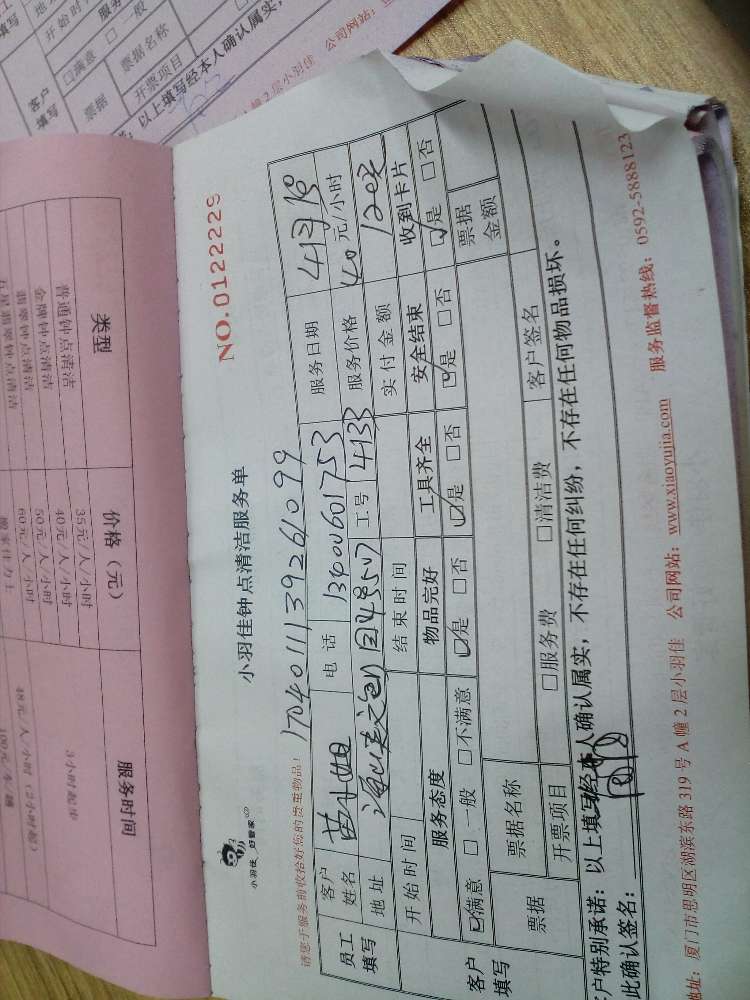 小羽佳钟点清洁服务单
NO.0122229
小羽佳 好管家
请您于服务前收拾好您的贵重物品!
17040111139261099
员工填写
客户姓名
苗小姐
电话
13400601753
服务日期
4月18
地址
工号
4133
服务价格
40 元/小时
开始时间
结束时间
实付金额
120元
客户填写
服务态度
物品完好
工具齐全
安全结束
收到卡片
☑满意 □一般 □不满意
☑是 □否
☑是 □否
☑是 □否
☑是 □否
票据
票据名称
票据金额
开票项目
□服务费
□清洁费
客户签名
户特别承诺:以上填写经本人确认属实,不存在任何纠纷,不存在任何物品损坏。
此确认签名:
地址:厦门市思明区湖滨东路319号A幢2层小羽佳 公司网站:www.xiaoyujia.com 服务监督热线:0592-5888123
类型
价格(元)
服务时间
普通钟点清洁
35元/人/小时
3小时起步
金牌钟点清洁
40元/人/小时
翡翠钟点清洁
50元/人/小时
60元/人/小时
开始时
服务
□满意
□一般
客户填写
票据
票据名称
开票项目
以上填写经本人确认属实,
幢2层小羽佳
公司网站: